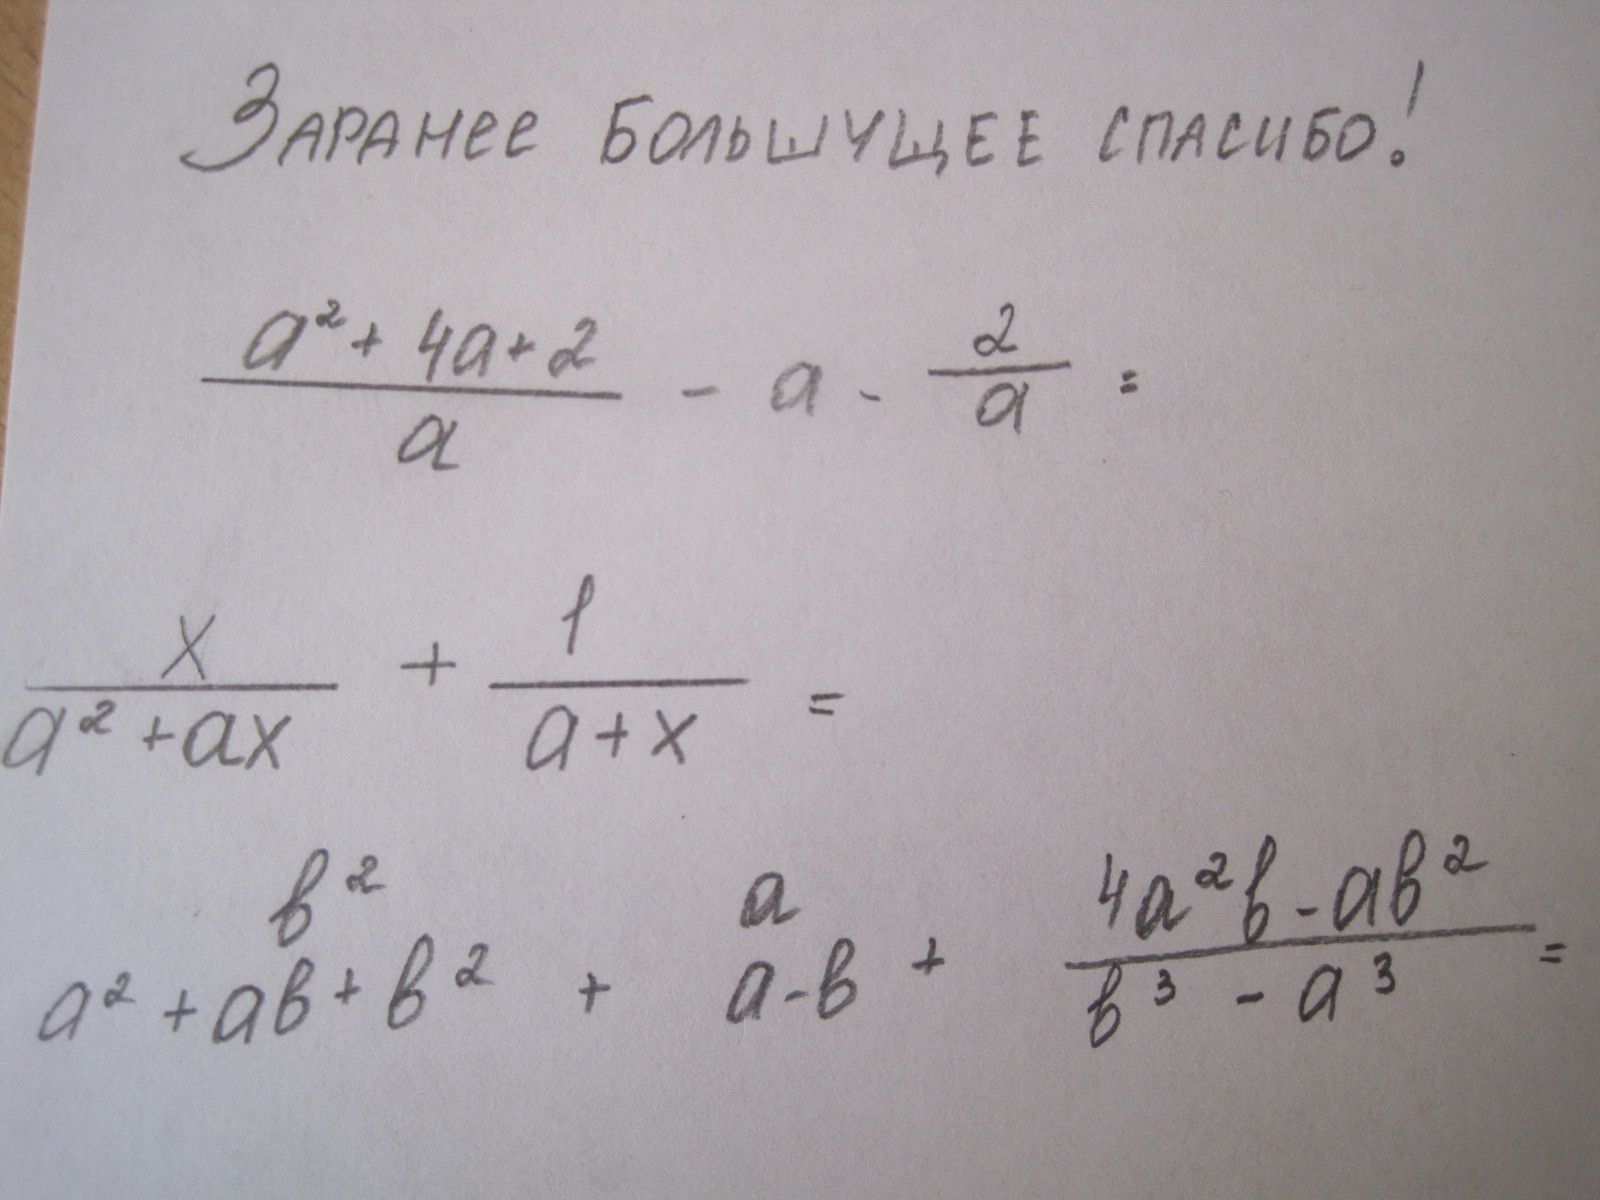 Заранее большущее спасибо!
a² + 4a + 2
a
- a -
2
a
=
x
a² + ax
+
1
a + x
=
в²
a² + aв + в²
+
a
a - в
+
4a²в - aв²
в³ - a³
=